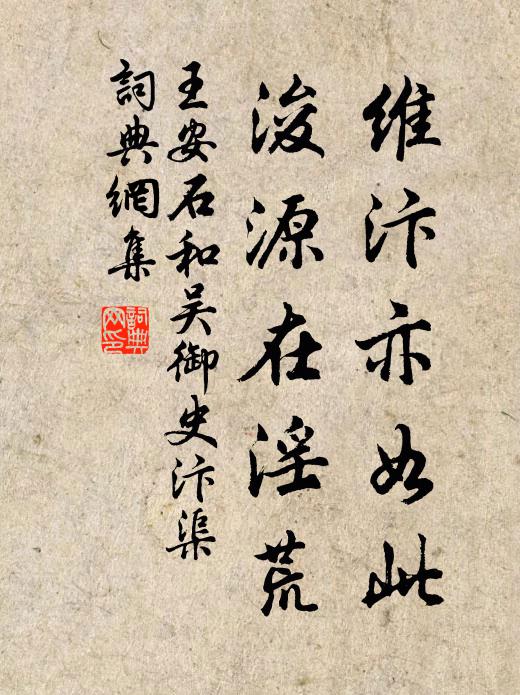 維汴亦如此
浚源在淫荒
王安石和吴御史汴渠
詞典網集
詞典
网印